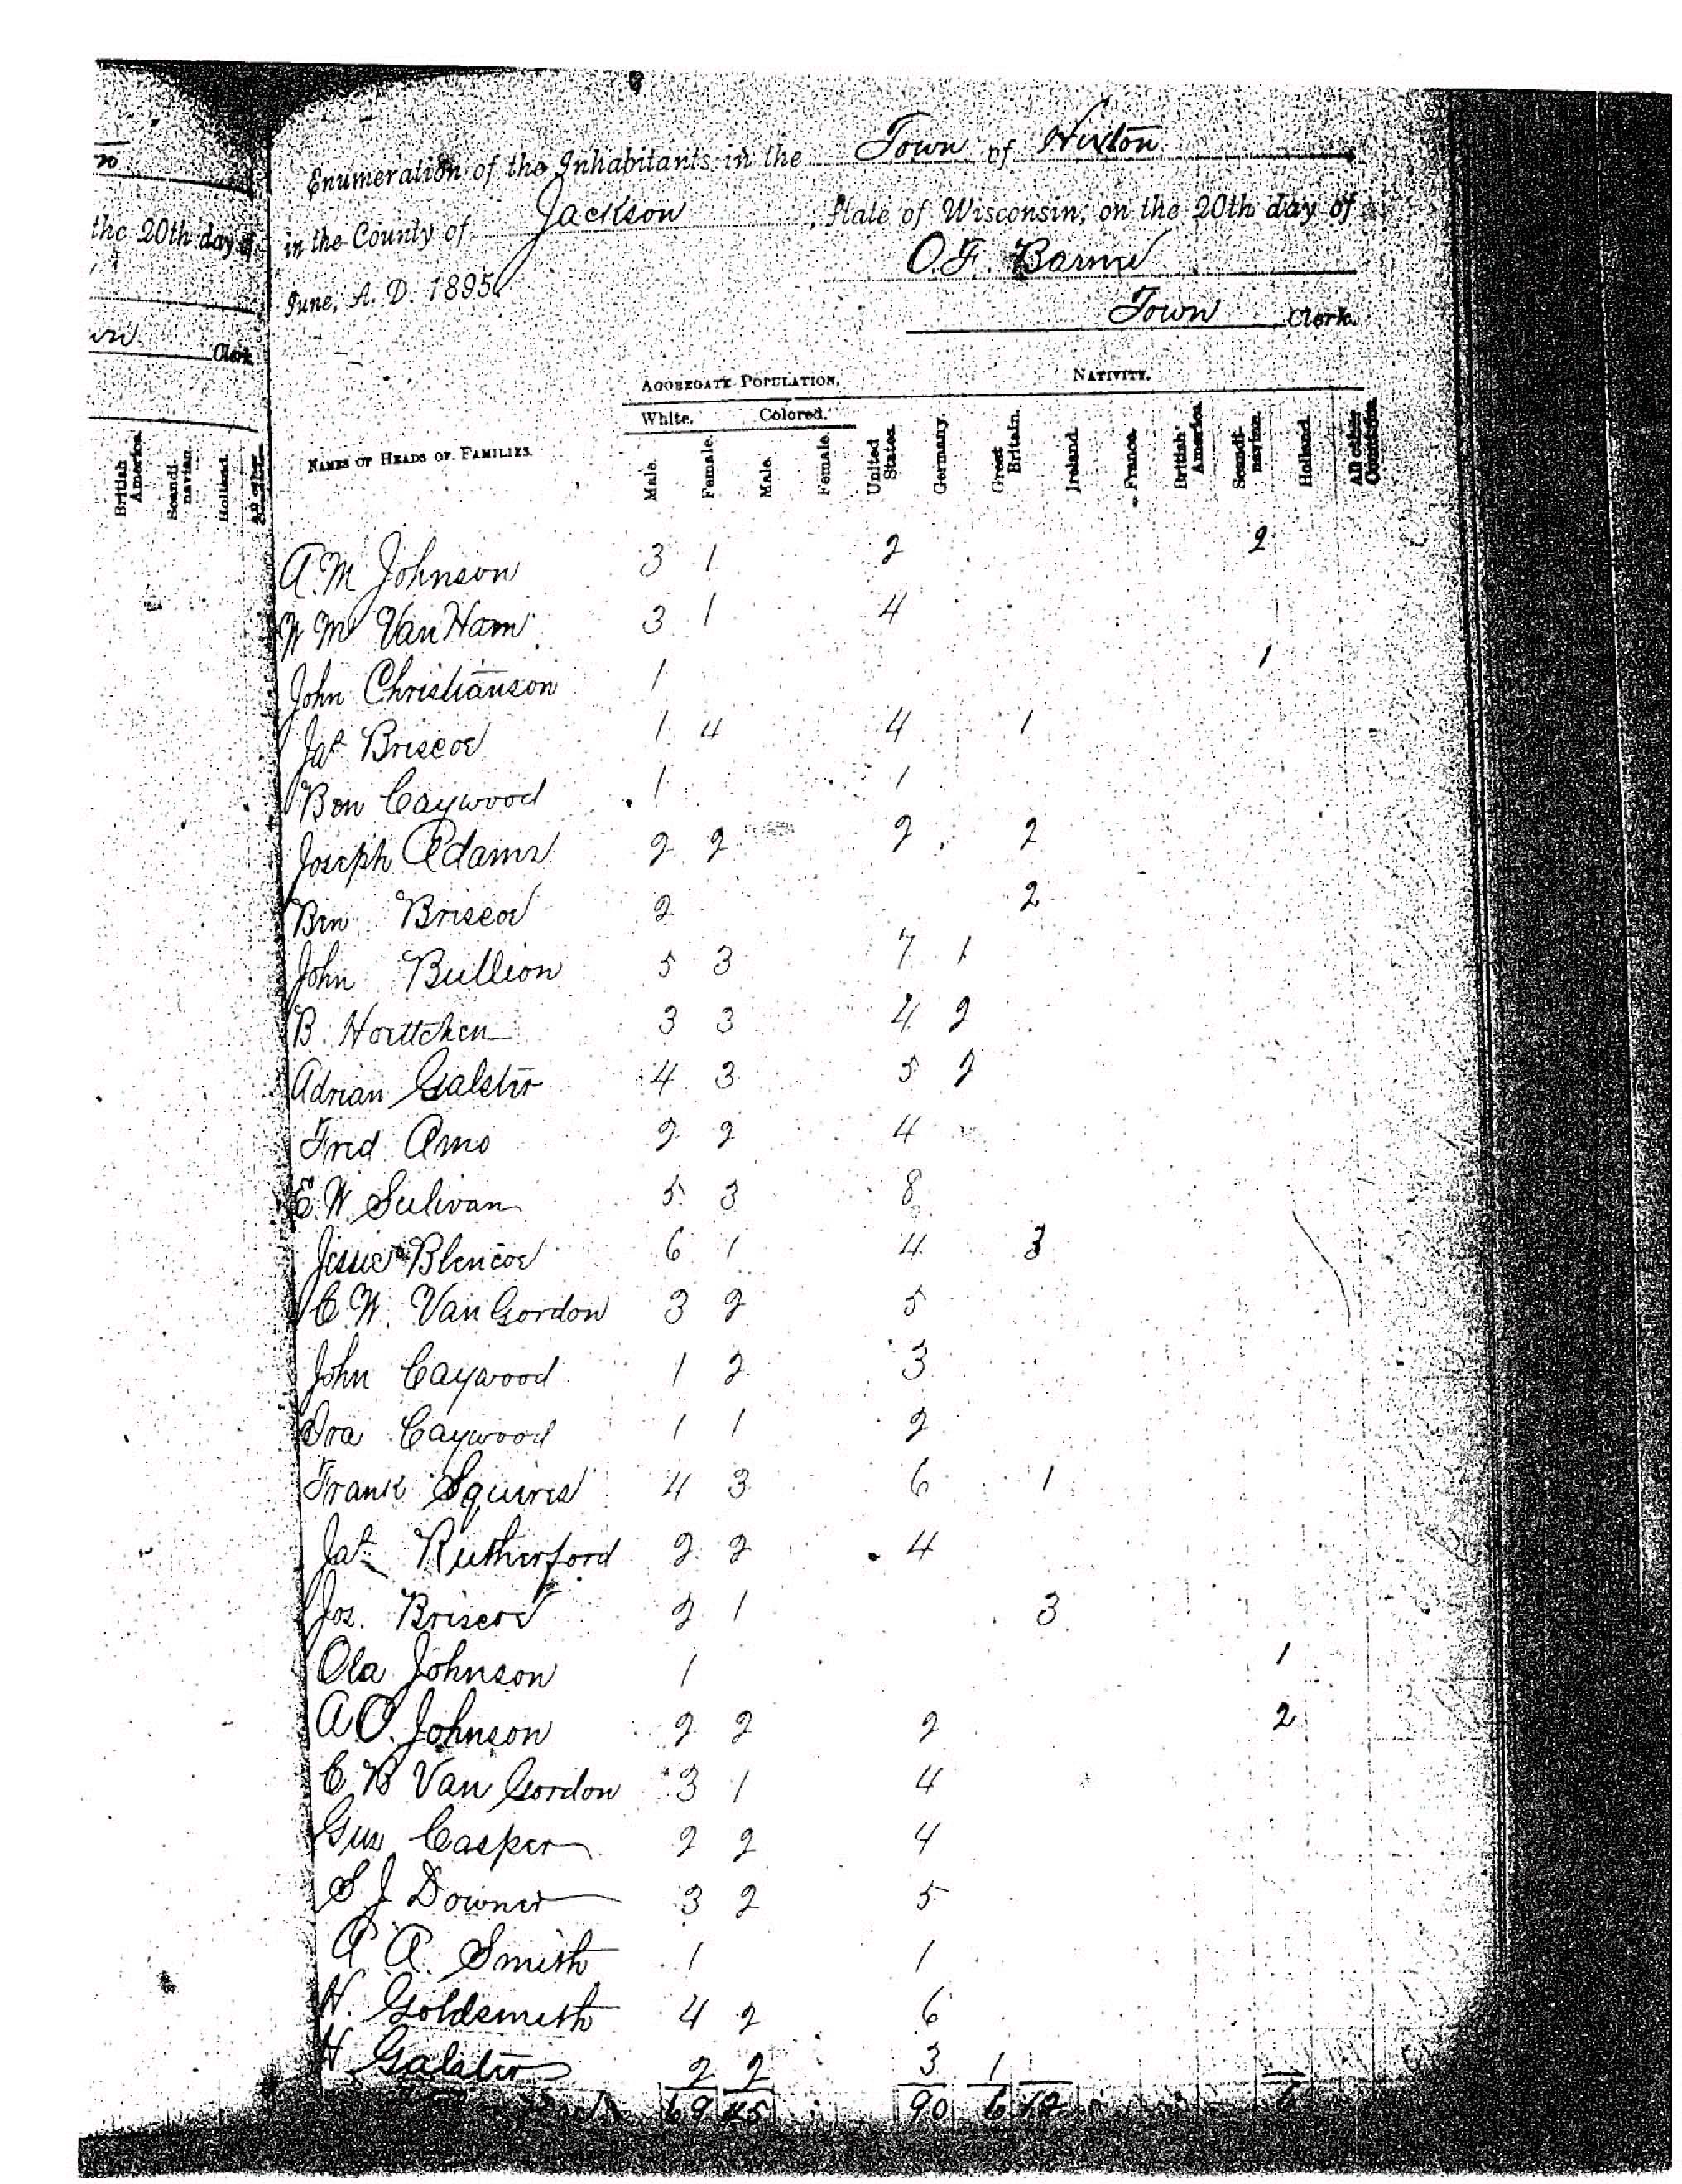 Enumeration of the Inhabitants in the Town of Hixton
in the County of Jackson, State of Wisconsin, on the 20th day of
June, A. D. 1895. O. F. Barnes
Town Clerk.
the 20th day of
Clerk
AGGREGATE POPULATION. NATIVITY.
White. Colored.
British America. Scandinavian. Holland. All other
NAMES OF HEADS OF FAMILIES. Male. Female. Male. Female. United States. Germany. Great Britain. Ireland. France. British America. Scandinavian. Holland. All other Countries.
A. M Johnson 3 1 2 2
Wm Van Ham 3 1 4
John Christianson 1 1
Jas Briscoe 1 4 4 1
Ben Caywood 1 1
Joseph Adams 2 2 2 2
Ben Briscoe 2 2
John Bullion 5 3 7 1
B. Hoettchen 3 3 4 2
Adrian Galster 4 3 5 2
Fred Amo 2 2 4
E. W. Sulivan 5 3 8
Jessie Blencoe 6 1 4 3
C. W. Van Gordon 3 2 5
John Caywood 1 2 3
Ora Caywood 1 1 2
Frank Squires 4 3 6 1
Jas Rutherford 2 2 4
Jos. Briscoe 2 1 3
Ola Johnson 1 1
A O. Johnson 2 2 2 2
C B Van Gordon 3 1 4
Gus Casper 2 2 4
S J Downer 3 2 5
A. Smith 1 1
H. Goldsmith 4 2 6
H Galster 2 2 3 1
69 45 90 6 12 6